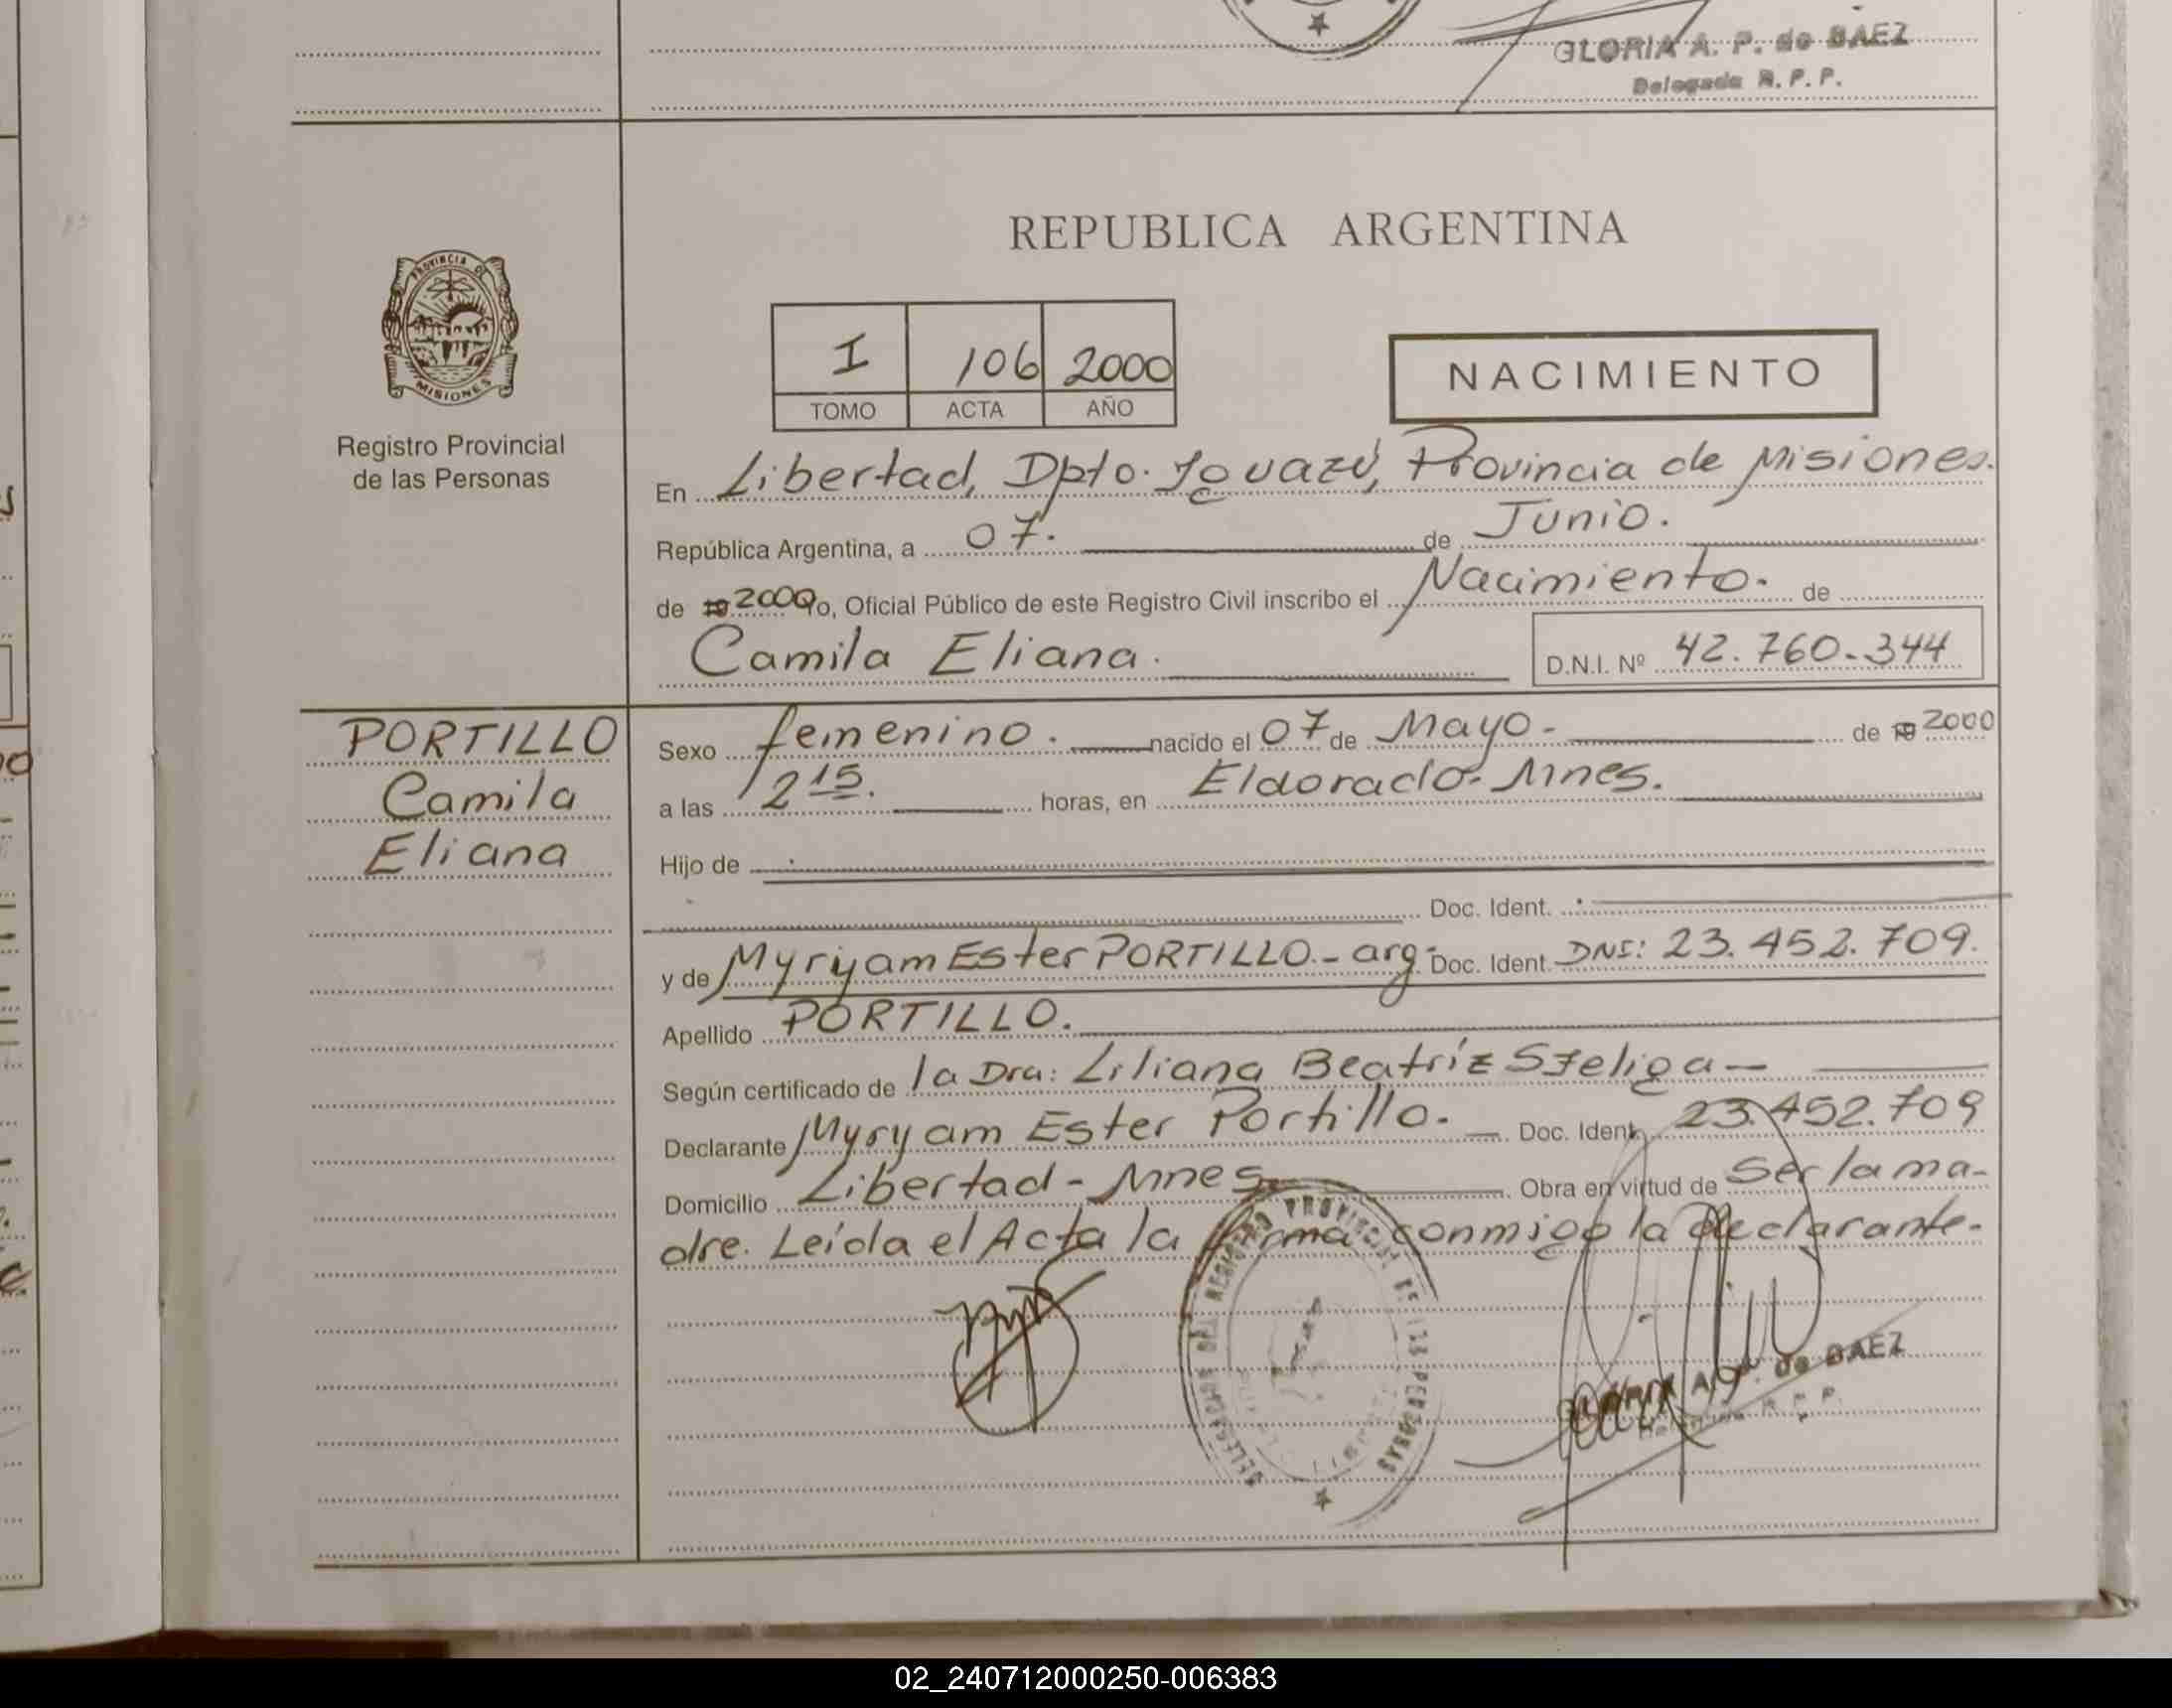 GLORIA A. P. de BAEZ
Delegada R. P. P.
REPUBLICA ARGENTINA
PROVINCIA DE
MISIONES
Registro Provincial
de las Personas
I 106 2000
TOMO ACTA AÑO
NACIMIENTO
En Libertad, Dpto. Iguazú, Provincia de Misiones.
República Argentina, a 07. de Junio.
de 19 2000 Yo, Oficial Público de este Registro Civil inscribo el Nacimiento. de
Camila Eliana. D.N.I. Nº 42.760.344
PORTILLO
Camila
Eliana
Sexo femenino. nacido el 07 de Mayo - de 19 2000
a las 12 15. horas, en Eldorado - Mnes.
Hijo de
Doc. Ident.
y de Myryam Ester PORTILLO.- arg- Doc. Ident. DNI: 23.452.709.
Apellido PORTILLO.
Según certificado de la Dra: Liliana Beatríz Szeliga —
Declarante Myryam Ester Portillo. — Doc. Ident. 23.452.709
Domicilio Libertad - Mnes Obra en virtud de Ser la ma-
dre. Leída el Acta la firma conmigo la Declarante.
DELEGACION DEL REGISTRO PROVINCIAL DE LAS PERSONAS
de BAEZ
02_240712000250-006383